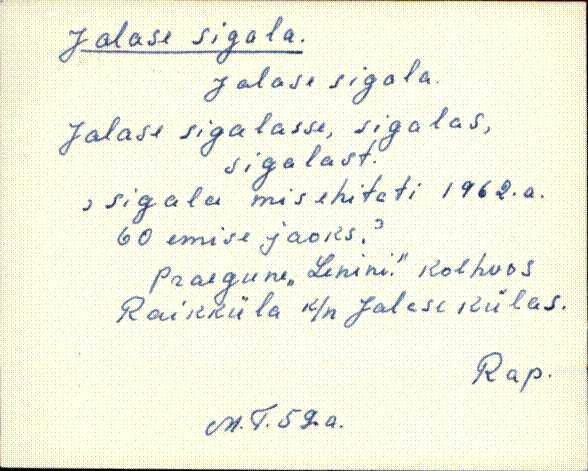 Jalase sigala.
Jalase sigala.
Jalase sigalasse, sigalas,
sigalast.
, sigala mis ehitati 1962.a.
60 emise jaoks.³
praegune „Lenini.” kolhoos
Raikküla k/n Jalase külas.
Rap.
M.T.59.a.